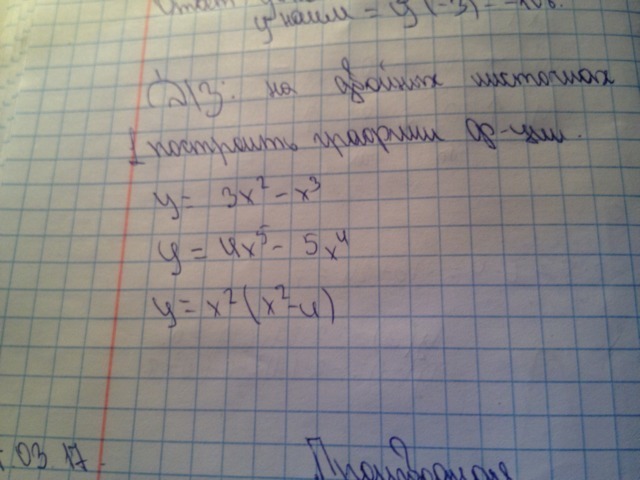 y наим = y (-3) =
Д/З: на двойных листочках
1 построить графики ф-ции.
y = 3x² - x³
y = 4x⁵ - 5x⁴
y = x² (x² - 4)
03 17.